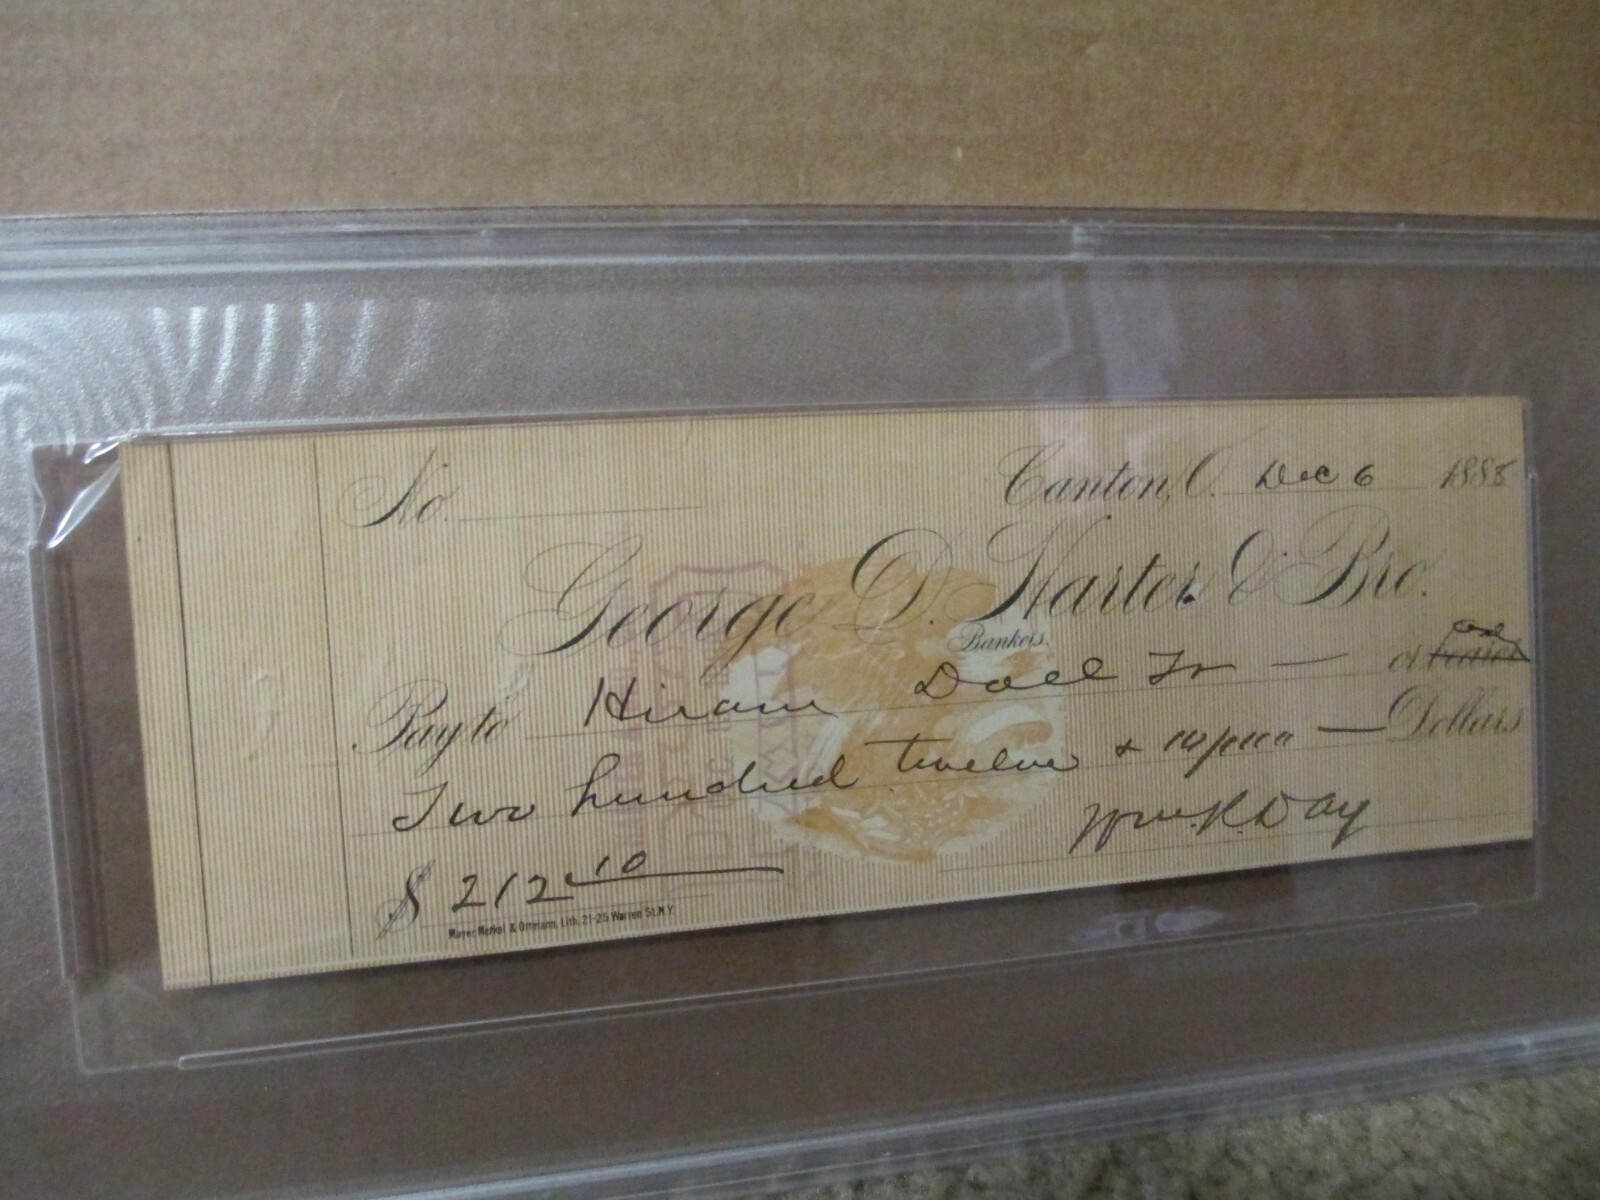 No. Canton, O. Dec 6 1888
George D. Harter & Bro.
Bankers.
Pay to Hiram Doll Tr — or bearer
Two hundred twelve & 10/100 — Dollars
Wm. R. Day
$ 212.10
Mayer, Merkel & Ottmann, Lith. 21-25 Warren St. N.Y.